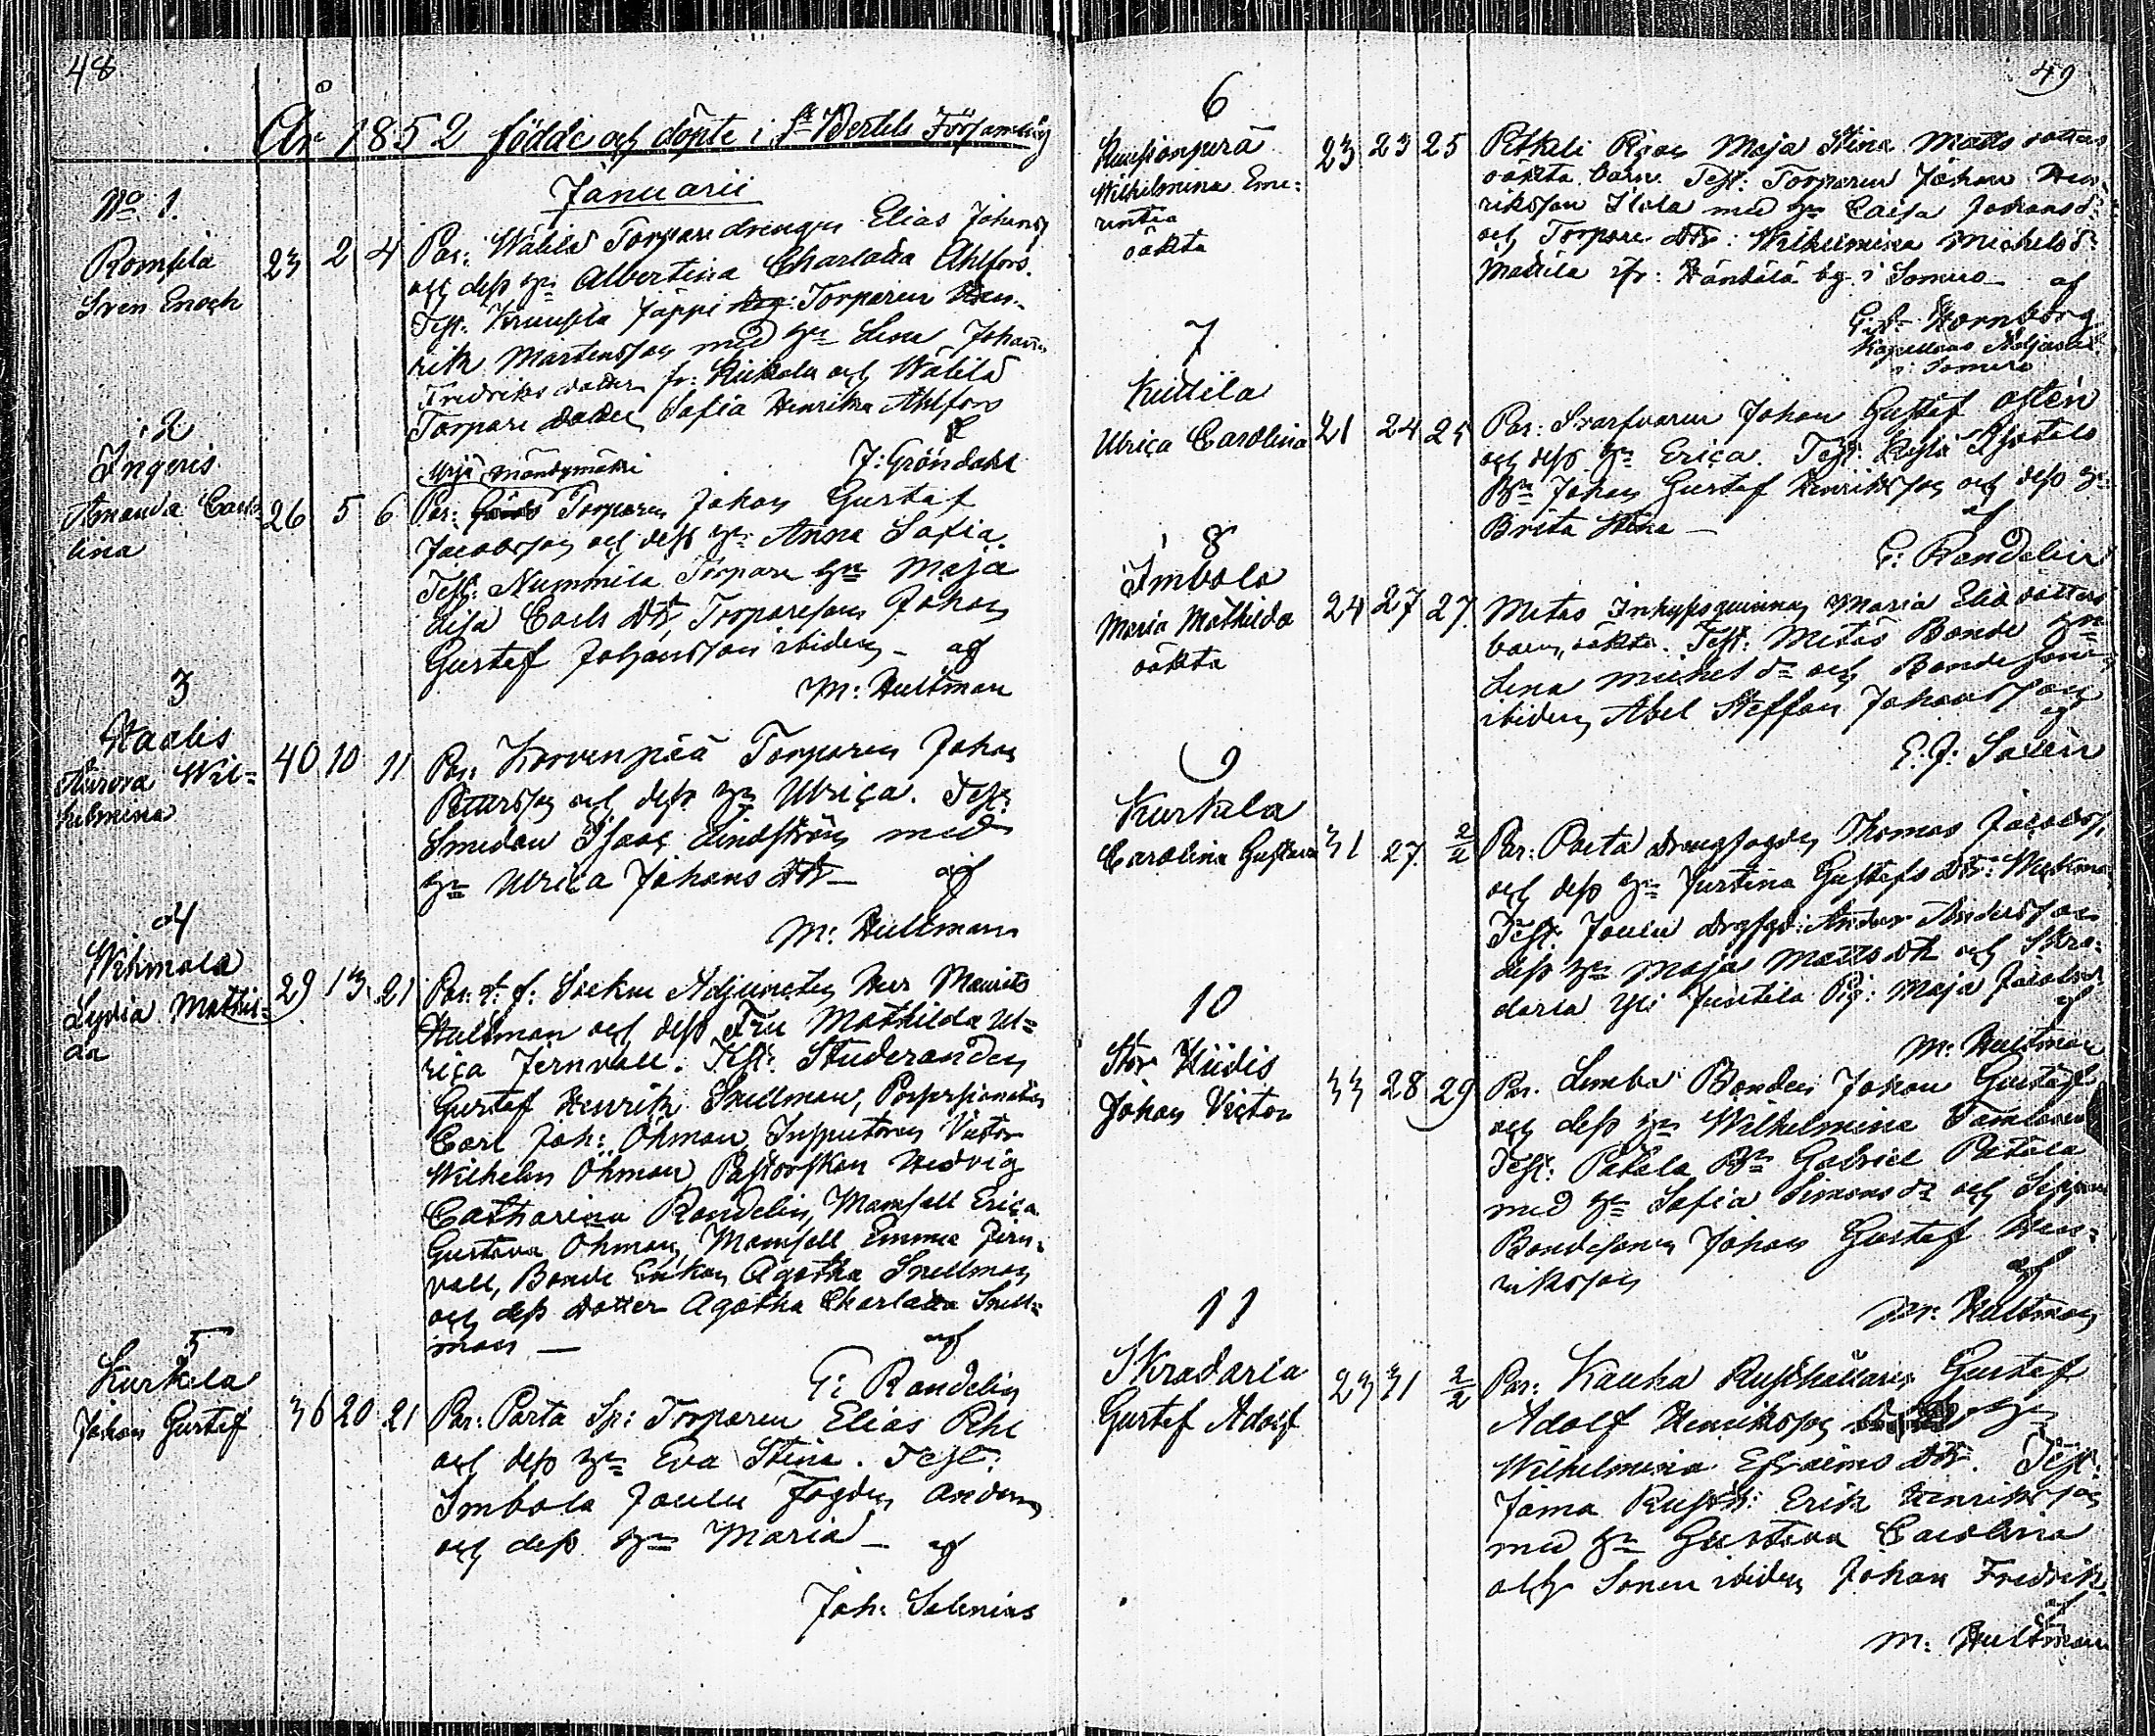 48
År 1852 födde och döpte i St Bertels Församling
Januarii
No 1.
Rompila
Sven Enoch
23 2 4
Par: Wälilä Torparedrengen Elias Johans
och dess hu Albertina Charlotta Ahlfors.
Test: Jäppi Torparen Hen-
rik Mårtensson med hu Lena Johan
Fredriks dotter fr: och Wälilä
Torpare dotter Sofia Henrika Ahlfors
af
J: Gröndahl
2
Ingeris
Amanda Caro-
lina
26 5 6
Par: Torparen Johan Gustaf
Jacobsson och dess hu Anna Sofia.
Test: Nummila Torpare hu Maja
Lisa Carls dtr, Torparesonen Johan
Gustaf Johansson ibidem – af
M: Hultman
3
Haalis
Aurora Wil=
helmina
40 10 11
Par: Korvenpää Torparen Johan
Pettersson och dess hu Ulrica. Test:
Smeden Isaac Lindström med
hu Ulrica Johans dtr – af
M: Hultman
4
Wihmala
Lydia Mathil=
da
29 13 21
Par: Sockne Adjuncten Herr Maurits
Hultman och dess Fru Mathilda Ul=
rica Jernvall. Test: Studeranden
Gustaf Henrik Snellman, Possessionaten
Carl Joh: Öhman, Inspectoren Victor
Wilhelm Öhman, Pastorskan Hedvig
Catharina Randelin, Mamsell Erica
Gustava Öhman, Mamsell Emma Jern=
vall, Bonde Enkan Agatha Snellman
och dess dotter Agatha Charlotta Snell=
man — af
G: Randelin
5
Kurkela
Johan Gustaf
36 20 21
Par: Parta Sp: Torparen Elias
och dess hu Eva Stina. Test:
Imbola Joulu Fogden Anders
och dess hu Maria – af
Joh: Selenius
49
6
Wilhelmina Eme=
rentia
oäkta
23 23 25
Pigan Maja Stina Matts dotters
oäkta barn. Test: Torparen Johan Hen=
riksson Ilola med hu Caisa Johans d:
och Torpare dtr: Wilhelmina Michels d:
by i Somero – af
Hornborg
Kapellans Adjunct
i Somero
7
Kuttila
Ulrica Carolina
21 24 25
Par: Svarfvaren Johan Gustaf
och dess hu Erica. Test:
Bn Johan Gustaf Henriksson och dess hu
Brita Stina — af
G: Randelin
8
Imbola
Maria Mathilda
oäkta
24 27 27
Metas Inhyses quinnan Maria Elias dotters
barn, oäkta. Test: Metas Bonde hu
Lena Michels dr och Bonde sonen
ibidem Abel Steffan Johansson
af
E. J: Salin
9
Kurkela
Carolina Gustava
31 27 2/2
Par: Parta Drengfogden Thomas Jacobss.
och dess hu Justina Gustafs dtr:
Test: Joulu Anders Andersson
dess hu Maja Matts dtr och Skra=
darla Pig: Maja Jacobs dr
af
M: Hultman
10
Stor Hiidis
Johan Victor
33 28 29
Par. Lemba Bonden Johan Gustaf
och dess hu Wilhelmina
Test: Pätälä Bn Gabriel Pätälä
med hu Sofia Simons dr och
Bondesonen Johan Gustaf Hen=
riksson af
M: Hultman
11
Skradarla
Gustaf Adolf
23 31 2/2
Par: Kauha Rusthållaren Gustaf
Adolf Henriksson hu
Wilhelmina Efraims dtr. Test:
Jäma Rusth: Erik Henriksson
med hu Gustava Carolina
och Sonen ibidem Johan Fredrik.
af
M: Hultman